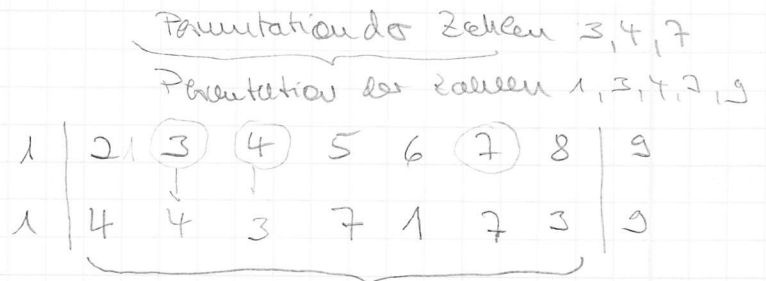 Permutation der Zahlen 3,4,7
Permutation der Zahlen 1,3,4,7,9
1 | 2 3 4 5 6 7 8 | 9
1 | 4 4 3 7 1 7 3 | 9